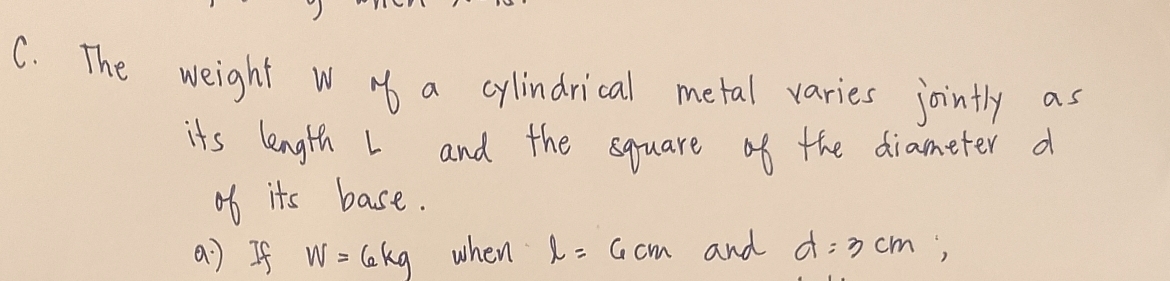 y when
C. The weight W of a cylindrical metal varies jointly as
its length L and the square of the diameter d
of its base.
a.) If W = 6kg when l = 6 cm and d = 3 cm ;